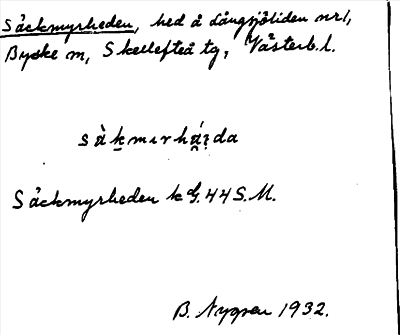 Säckmyrheden, hed å Långsjöliden nr 1,
Byske sn, Skellefteå tg, Västerb. l.
sȧk̲mırhá̤ı̣da
Säckmyrheden k G. 44 S.M.
B. Nygren 1932.